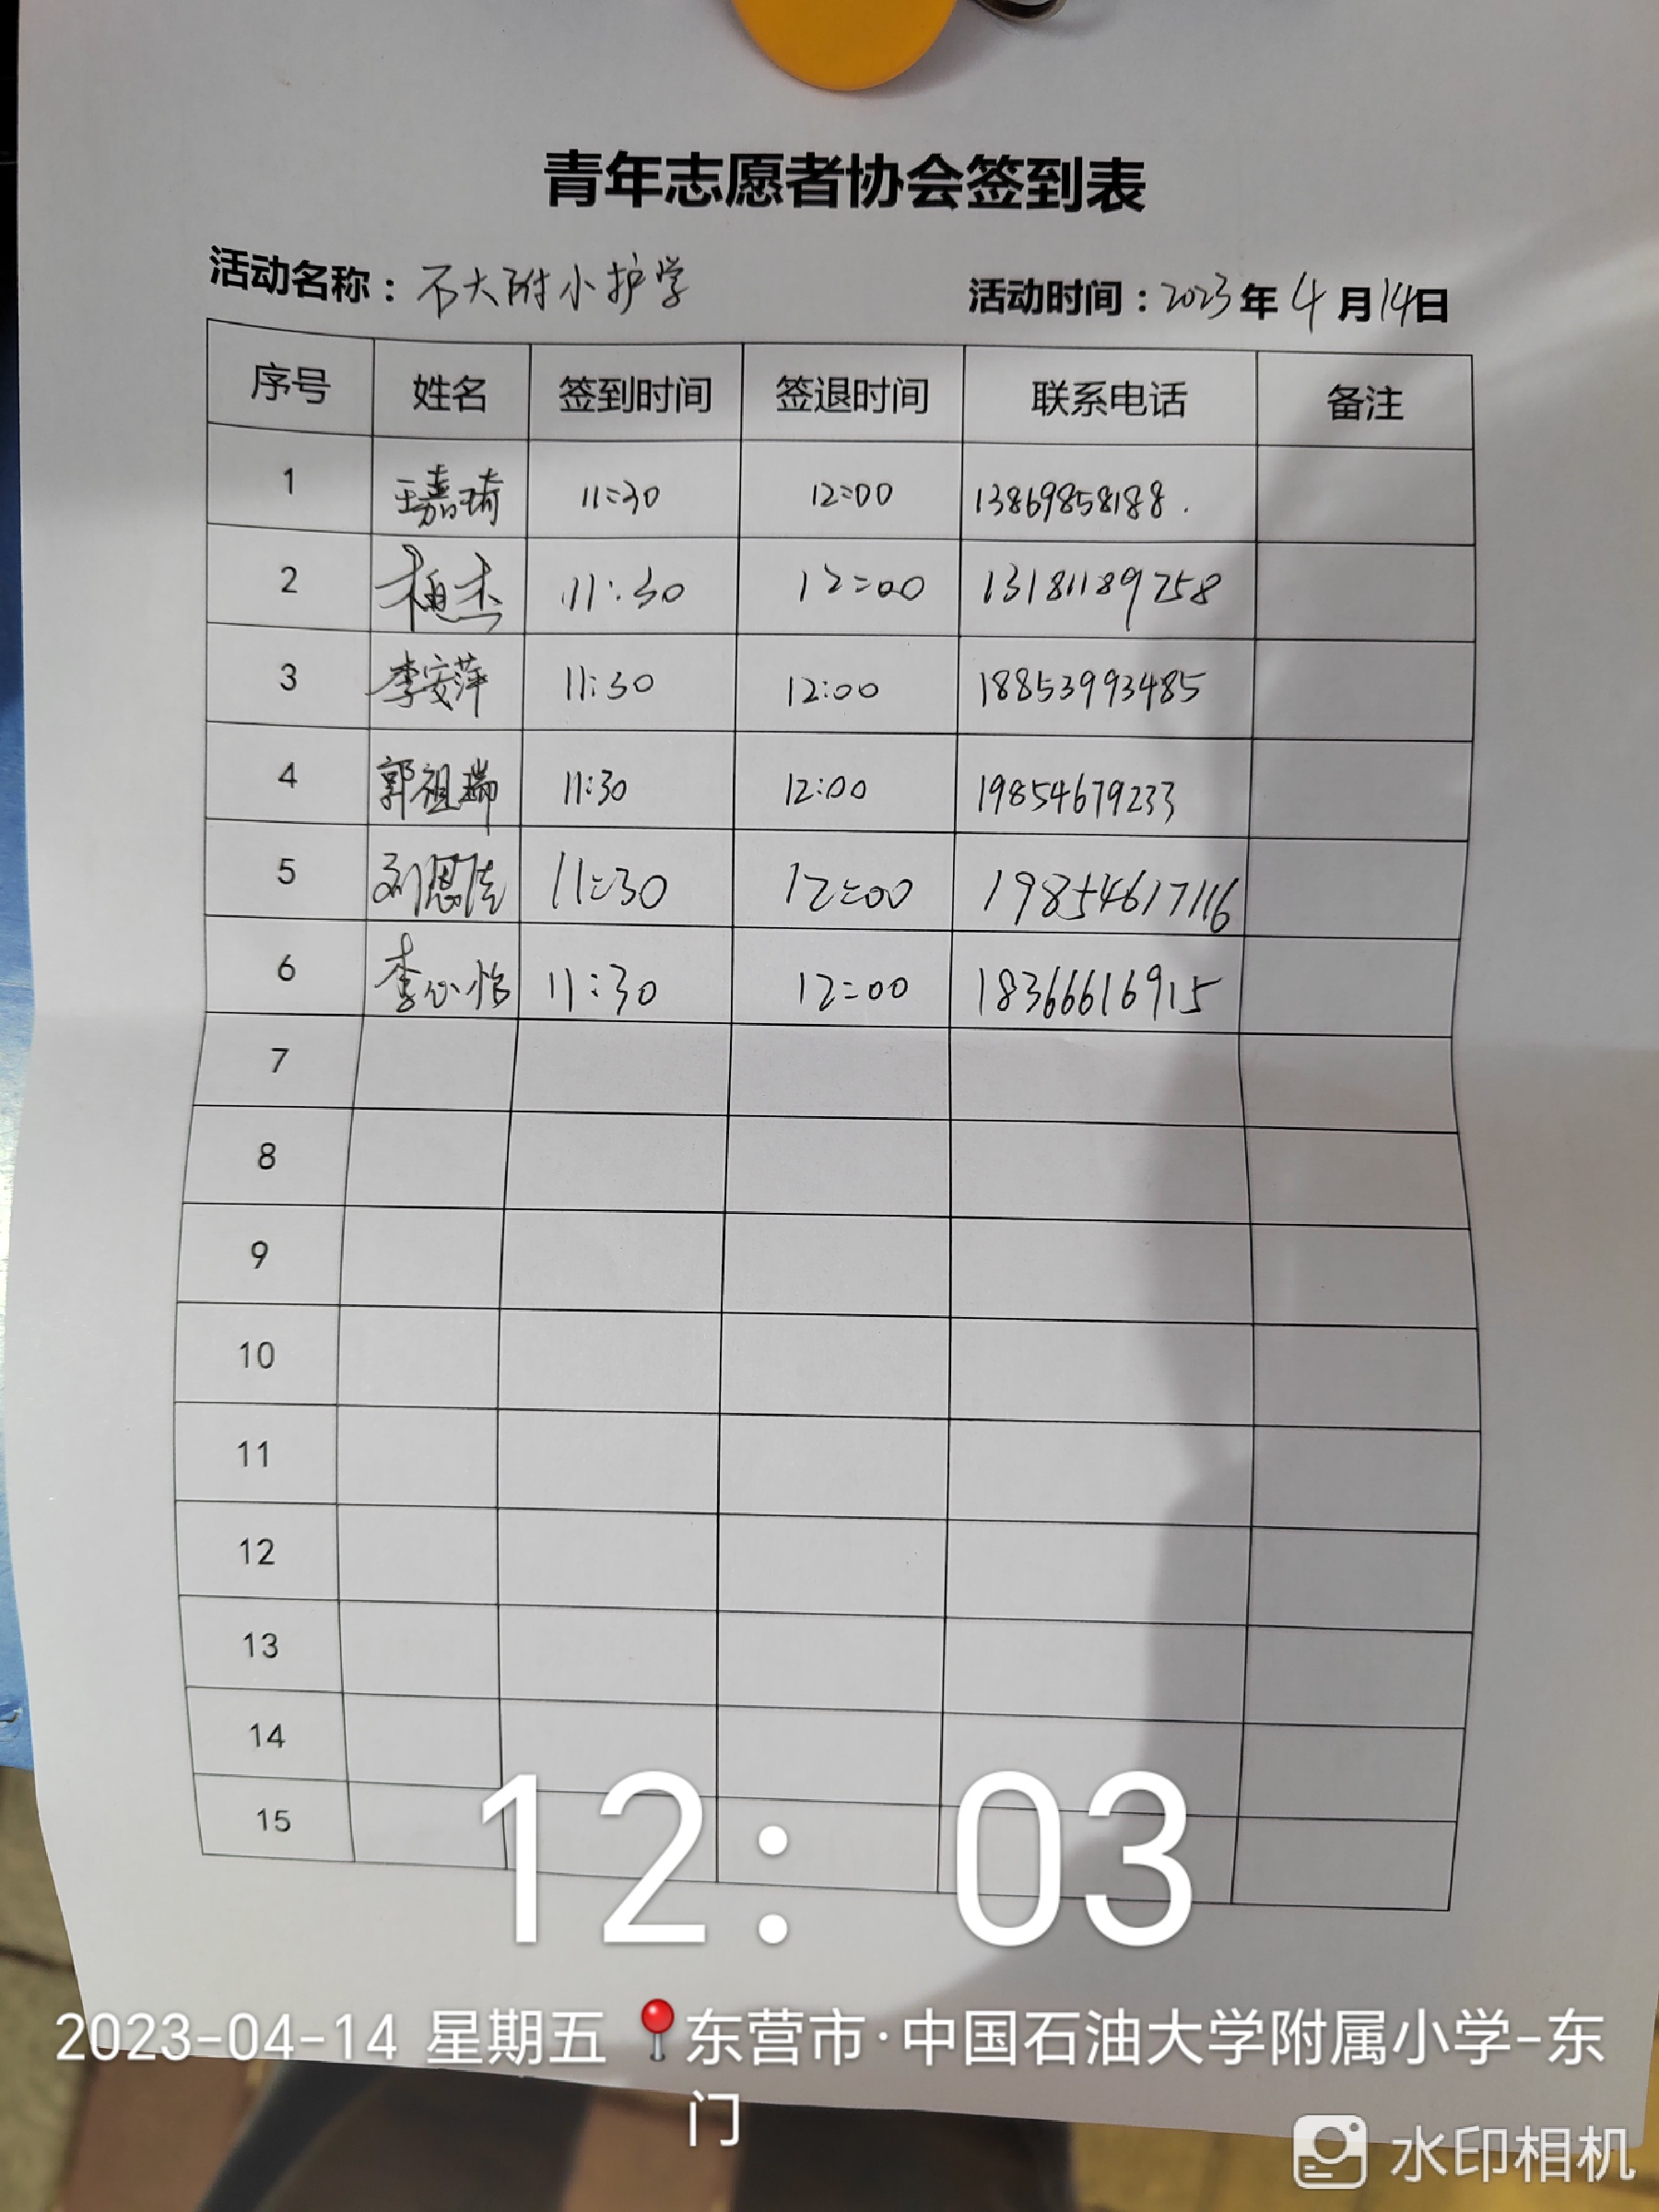 青年志愿者协会签到表
活动名称：石大附小护学 活动时间：2023年4月14日
序号 姓名 签到时间 签退时间 联系电话 备注
1 王嘉琦 11:30 12:00 13869858188.
2 柏杰 11:30 12:00 13181189258
3 李安萍 11:30 12:00 18853993485
4 郭祖瑞 11:30 12:00 19854679233
5 刘恩佳 11:30 12:00 19854617116
6 李心怡 11:30 12:00 18366616915
7
8
9
10
11
12
13
14
15
12: 03
2023-04-14 星期五 东营市·中国石油大学附属小学-东
门
水印相机